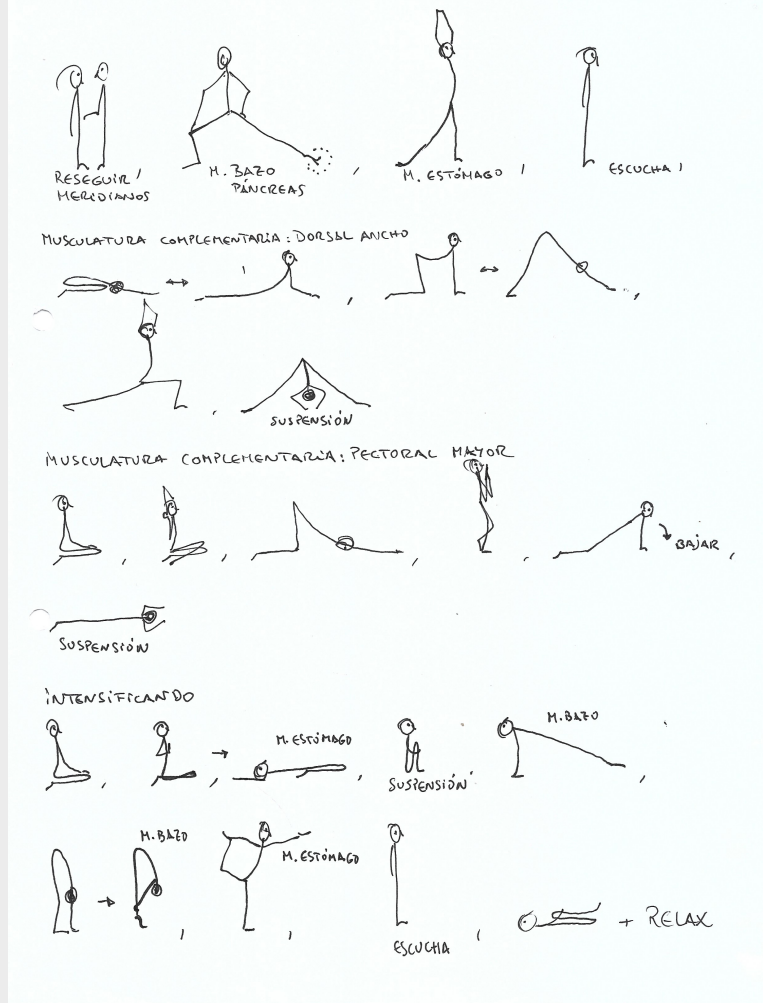 RESEGUIR
MERIDIANOS
M. BAZO
PÁNCREAS
M. ESTÓMAGO
ESCUCHA
MUSCULATURA COMPLEMENTARIA: DORSAL ANCHO
SUSPENSIÓN
MUSCULATURA COMPLEMENTARIA: PECTORAL MAYOR
BAJAR
SUSPENSIÓN
INTENSIFICANDO
M. ESTÓMAGO
SUSPENSIÓN
M. BAZO
M. BAZO
M. ESTÓMAGO
ESCUCHA
+ RELAX